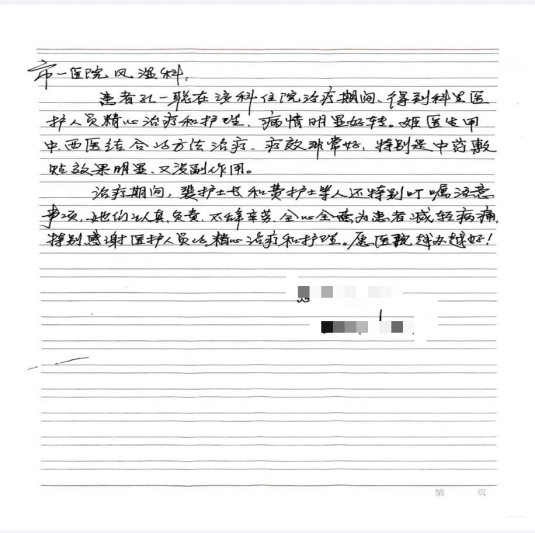 市一医院风湿科,
患者孔一聪在该科住院治疗期间、得到科里医
护人员精心治疗和护理、病情明显好转。姬医生用
中、西医结合的方法治疗、疗效非常好,特别是中药敷
贴效果明显、又没副作用。
治疗期间,裴护士长和黄护士等人还特别叮嘱注意
事项、她们认真负责、不辞辛苦、全心全意为患者减轻病痛
特别感谢医护人员的精心治疗和护理。愿医院越办越好!
第 页